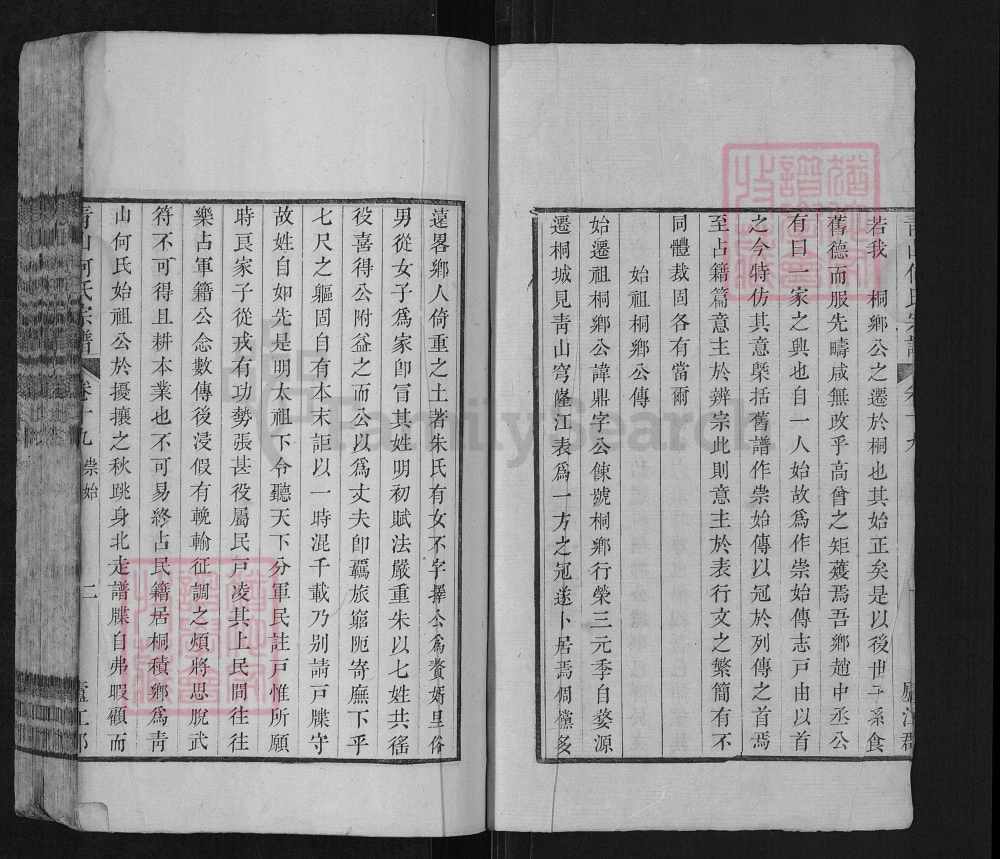 青山何氏宗譜 卷十九 廬江郡
若我 桐鄉公之遷於桐也其始正矣是以後世子系食
舊德而服先疇咸無改乎高曾之矩矱焉吾鄉趙中丞公
有曰一家之興也自一人始故爲作崇始傳志戸由以首
之今特仿其意檃括舊譜作崇始傳以冠於列傳之首焉
至占籍篇意主於辨宗此則意主於表行文之繁簡有不
同體裁固各有當爾
始祖桐鄉公傳
始遷祖桐鄉公諱鼎字公餗號桐鄉行榮三元季自婺源
遷桐城見靑山穹窿江表爲一方之冠遂卜居焉倜儻多
遠畧鄉人倚重之土著朱氏有女不字擇公爲贅婿里俗
男從女子爲家卽冐其姓明初賦法嚴重朱以七姓共徭
役喜得公附益之而公以爲丈夫卽羈旅窮阨寄廡下乎
七尺之軀固自有本末詎以一時混千載乃别請戸牒守
故姓自如先是明太祖下令聽天下分軍民註戸惟所願
時良家子從戎有功勢張甚役屬民戸凌其上民間往往
樂占軍籍公念數傳後浸假有輓輸征調之煩將思脫武
符不可得且耕本業也不可易終占民籍居桐積鄉爲靑
山何氏始祖公於擾攘之秋跳身北走譜牒自弗暇顧而
青山何氏宗譜 卷十九 崇始 二 廬江郡
FamilySearch